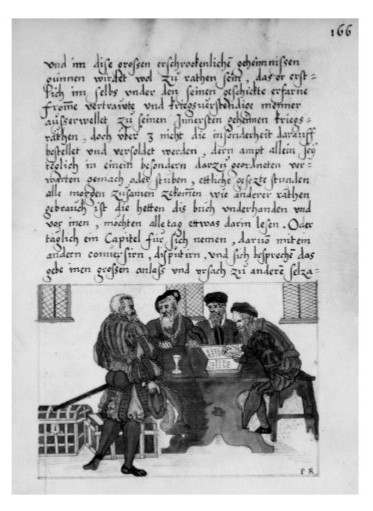 166
vnd im dise grossen erschrockenliche geheimnissen
gunnen wirdet wol zu rathen sein, das er erst=
lich im selbs vnder den seinen geschickte erfarne
fromme vertrawte vnd kriegsverstendige menner
ausserwellet zu seinen Innersten geheimen kriegs=
räthen, doch vber 3 nicht die in sonderheit darauff
bestellet vnd versoldet werden, dern ampt allein sey
teglich in einem besondern darzu geordneten ver=
gemach oder stuben, ettliche gesetzte stunden
alle morgen zusamen zekomen wie anderer räthen
gebrauch ist die hetten dis buch vnderhanden vnd
vor inen, möchten alle tag ettwas darin lesen. Oder
täglich ein Capitel für sich nemen, darus mit
andern conversirn, disputirn, vnd sich besprechē das
gebe inen grossen anlass vnd vrsach zu anderē selza=